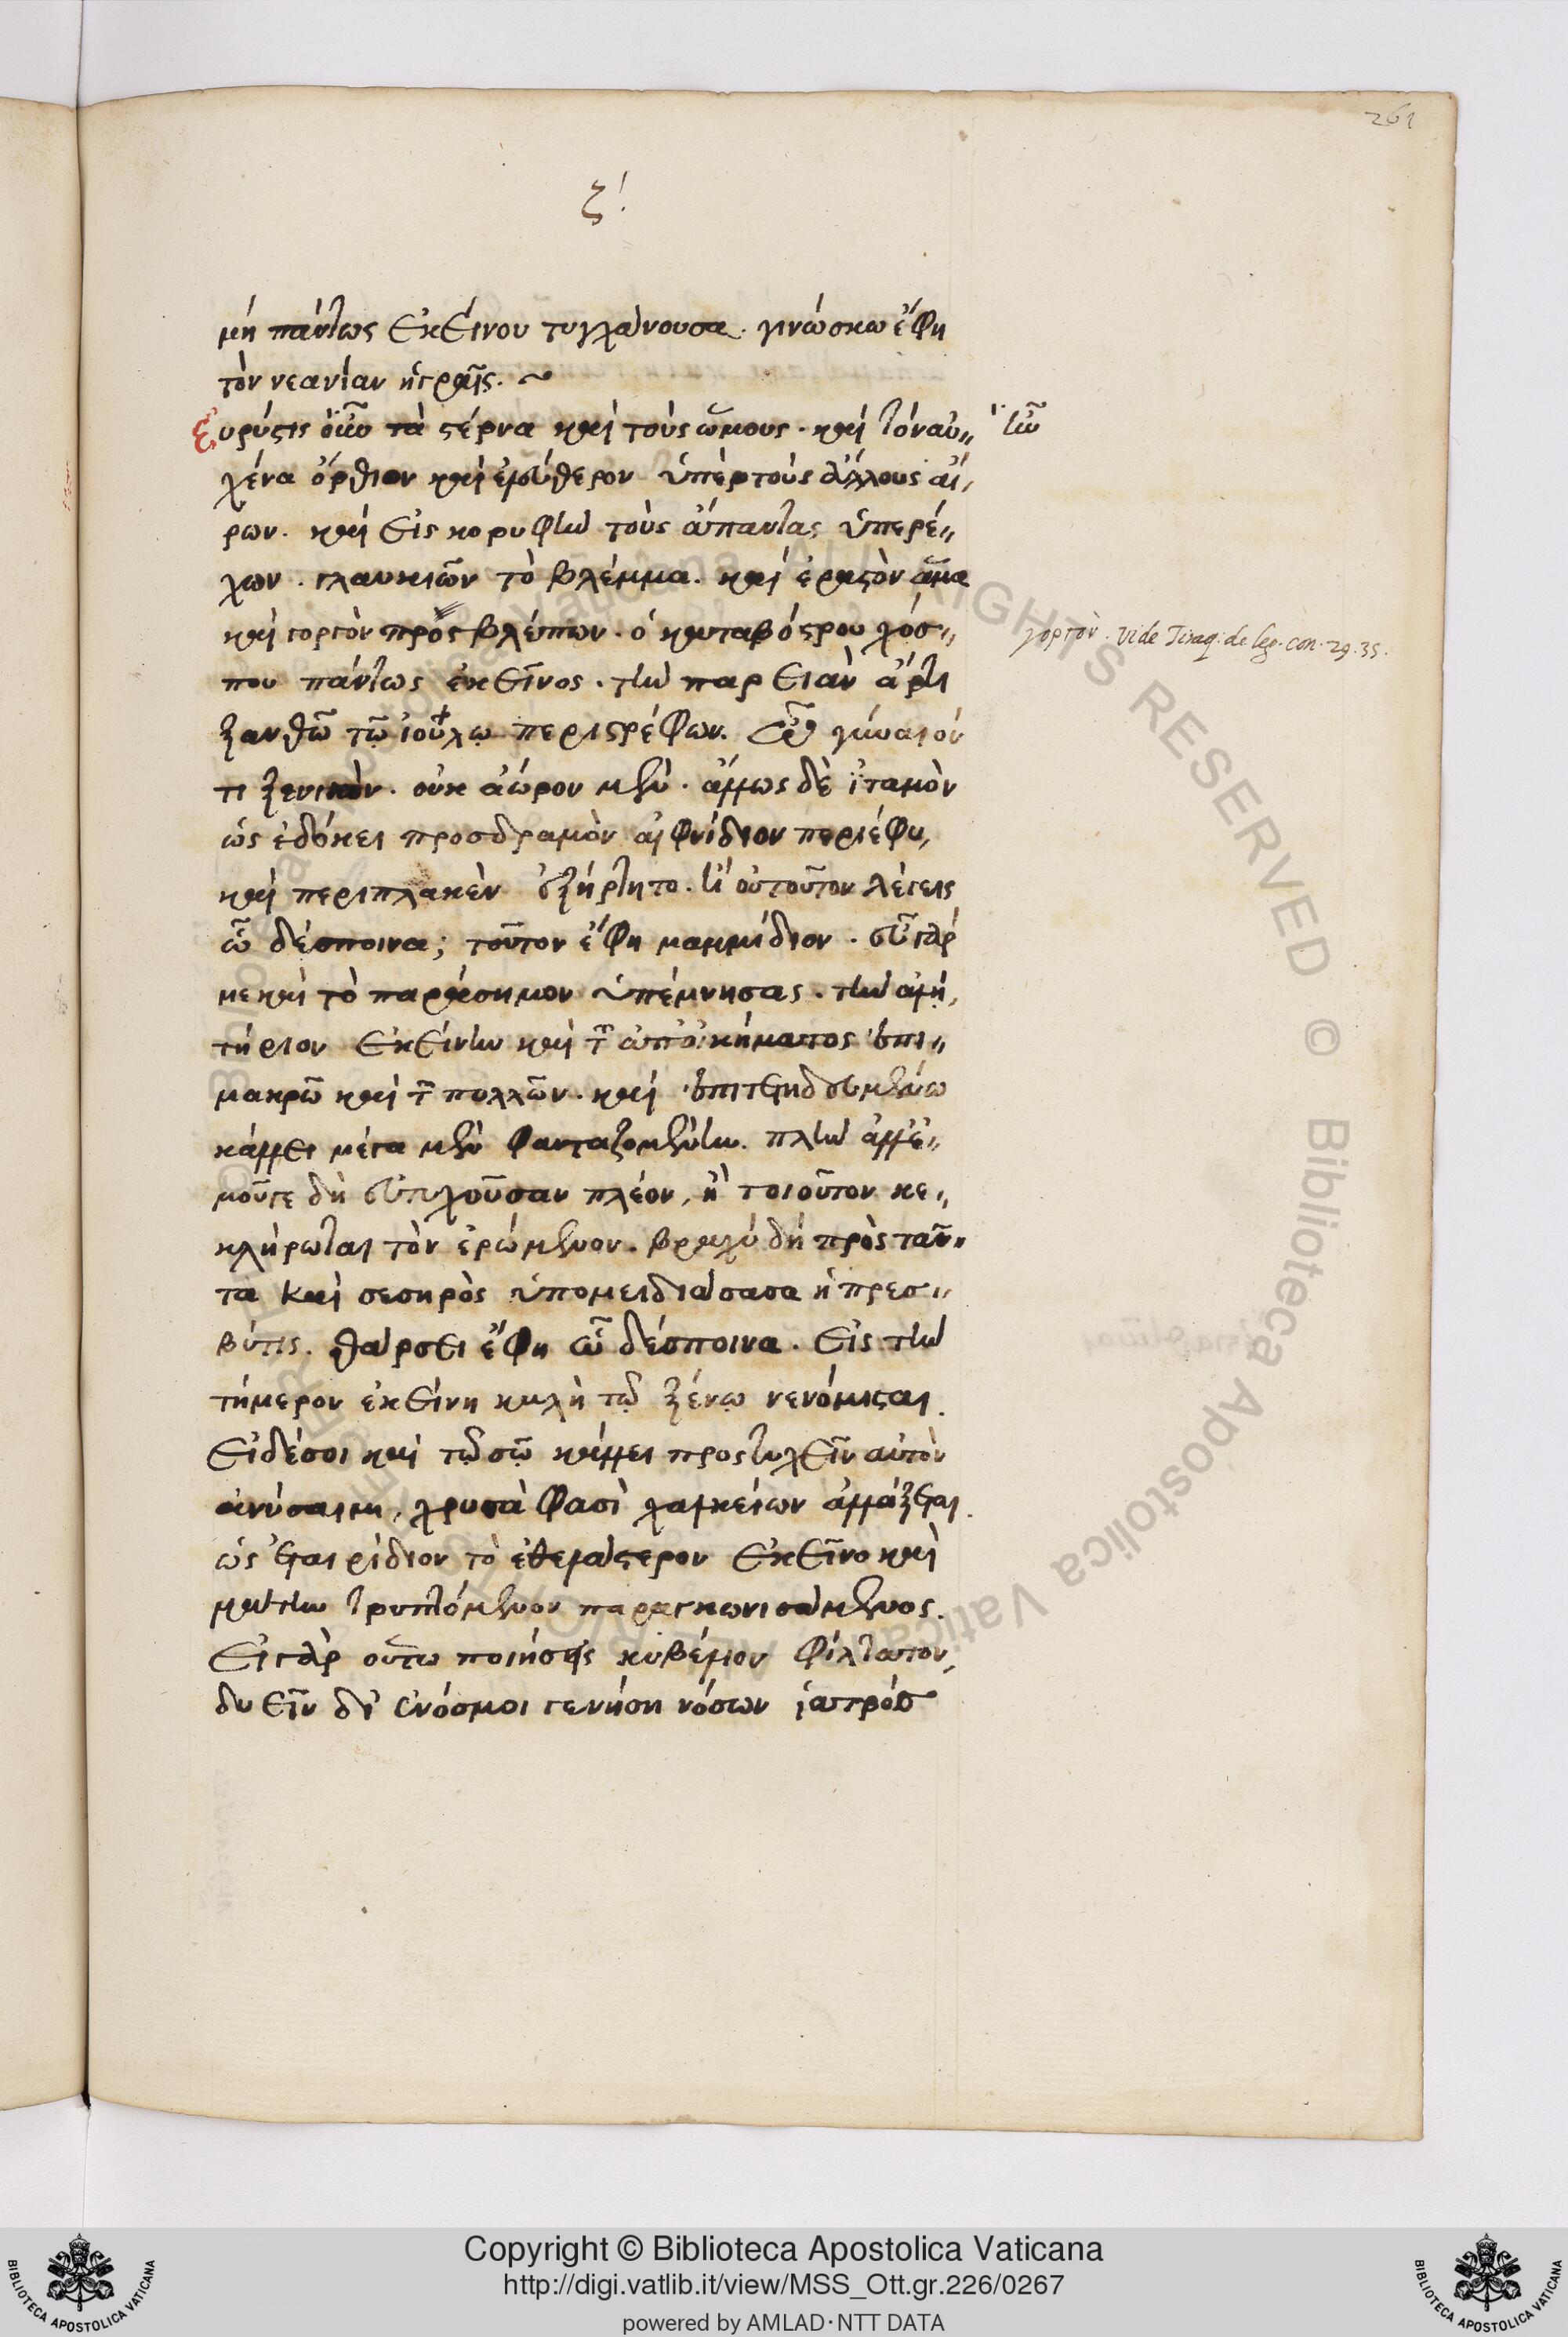 261
ζ!
μὴ πάντως ἐκείνου τυγχάνουσα. γινώσκω ἔφη
τὸν νεανίαν ἡ γραῦς. ~
Εὐρύς τις τὰ στέρνα καὶ τοὺς ὤμους. καὶ τὸν αὐ〃
χένα ὄρθιον καὶ ἐλεύθερον ὑπὲρ τοὺς ἄλλους αἴ,
ρων. καὶ εἰς κορυφὴν τοὺς ἅπαντας ὑπερέ〃
χων. γλαυκιῶν τὸ βλέμμα. καὶ ἐραστὸν ἅμα
καὶ γοργὸν προσβλέπων. ὁ κατὰ βόστρυχόσ〃
που πάντως ἐκεῖνος. τὴν παρειὰν ἄρτι
ξανθῶ τῷ ἰούλῳ περιστρέφων. γύναιόν
τι ξενικὸν. οὐκ ἄωρον μὲν. ἄλλως δὲ ἰταμὸν
ὡς ἐδόκει προσδραμὸν αἰφνίδιον περιέφυ,
καὶ περιπλακὲν ἐξήρτητο. τί οὐ τοῦτον λέγεις
ὦ δέσποινα; τοῦτον ἔφη μαμμίδιον. εὖ γάρ
με καὶ τὸ παράσημον ὑπέμνησας. τὴν ἀλή,
τήριον ἐκείνην καὶ τὴν ἀπὸ οἰκήματος ἐπι〃
μακρῶ καὶ τῶν πολλῶν. καὶ ἐπιτετηδευμένω
κάλλει μέγα μὲν φανταζομένην. πλὴν ἀλλ' ἐ〃
μοῦ γε δὴ εὐτυχοῦσαν πλέον, ἢ τοιοῦτον κε〃
κλήρωται τὸν ἐρώμενον. βραχὺ δὴ πρὸς ταῦ〃
τα καὶ σεσηρὸς ὑπομειδιάσασα ἡ πρεσ〃
βύτις. θάρσει ἔφη ὦ δέσποινα. εἰς τὴν
τήμερον ἐκείνη καλὴ τῷ ξένῳ νενόμισται.
εἰ δέ σοι καὶ τῷ σῷ κάλλει προστυχεῖν αὐτὸν
ἀνύσαιμι, χρυσᾶ φασὶ χαλκείων ἀλλάξεται.
ὡς ἑταιρίδιον τὸ ἐθελάστερον ἐκεῖνο καὶ
μάτην θρυπτόμενον παραγκωνισάμενος.
εἰ γὰρ οὕτω ποιήσεις κυβέλιον φίλτατον,
δυεῖν δι' ἑνός μοι γενήσῃ νόσων ἰατρός
ἰὼν
γοργὸν. vide Tiraq. de leg. con. 29. 35.
Copyright © Biblioteca Apostolica Vaticana
http://digi.vatlib.it/view/MSS_Ott.gr.226/0267
powered by AMLAD·NTT DATA
BIBLIOTECA APOSTOLICA VATICANA
BIBLIOTECA APOSTOLICA VATICANA